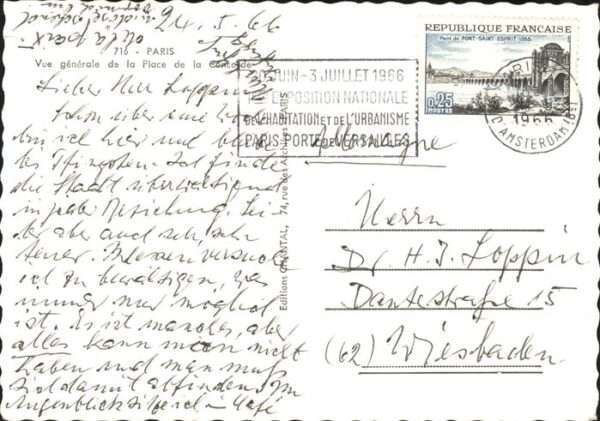 24. 5. 66
716 - PARIS
Vue générale de la Place de la Concorde
Lieber Herr Loppin!
Schon über eine Woche
bin ich hier und
Pfingsten. Ich finde
die Stadt überwältigend
in jeder Beziehung. Lei-
der aber auch sehr, sehr
teuer. versuche
ich zu bewältigen, was
immer nur möglich
ist. Es ist manches, aber
alles kann man nicht
haben und man muß
sich damit abfinden. Im
Augenblick sitze ich im Café
Editions CHANTAL, 74, rue des Archives - PARIS
REPUBLIQUE FRANÇAISE
Pont de PONT-SAINT-ESPRIT
0,25
POSTES
JUIN - 3 JUILLET 1966
EXPOSITION NATIONALE
DE L'HABITATION ET DE L'URBANISME
PARIS PORTE DE VERSAILLES
PARIS
1966
R. D'AMSTERDAM
Allemagne
Herrn
Dr. H. J. Loppin
Dantestraße 15
(62) Wiesbaden